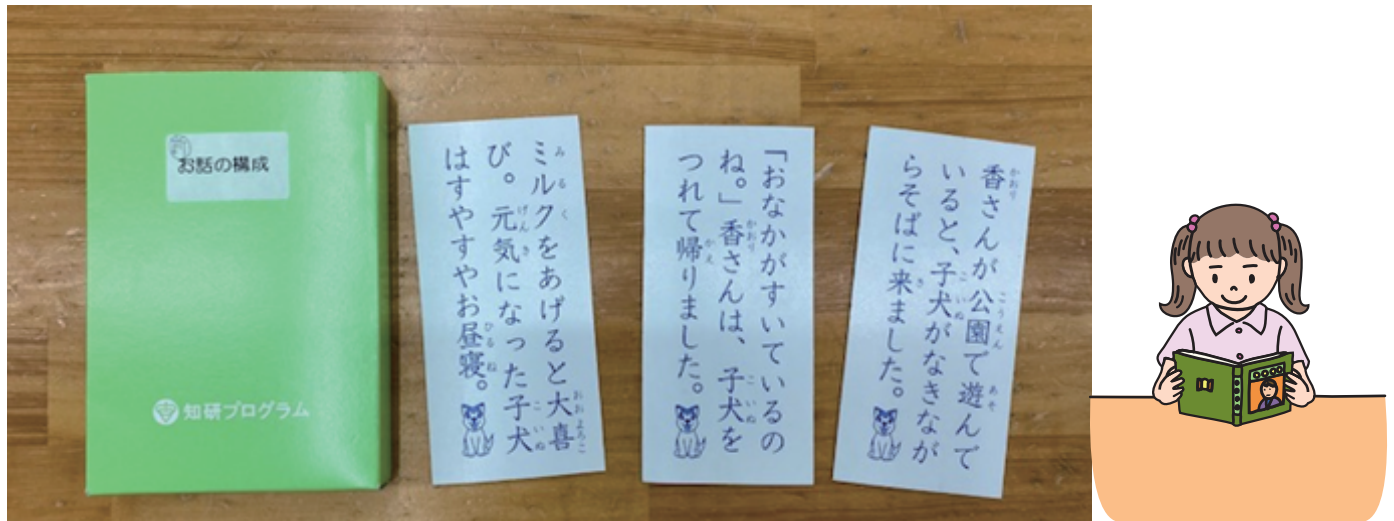 お話の構成
知研プログラム
香さんが公園で遊んで
いると、子犬がなきなが
らそばに来ました。
「おなかがすいているの
ね。」香さんは、子犬を
つれて帰りました。
ミルクをあげると大喜
び。元気になった子犬
はすやすやお昼寝。